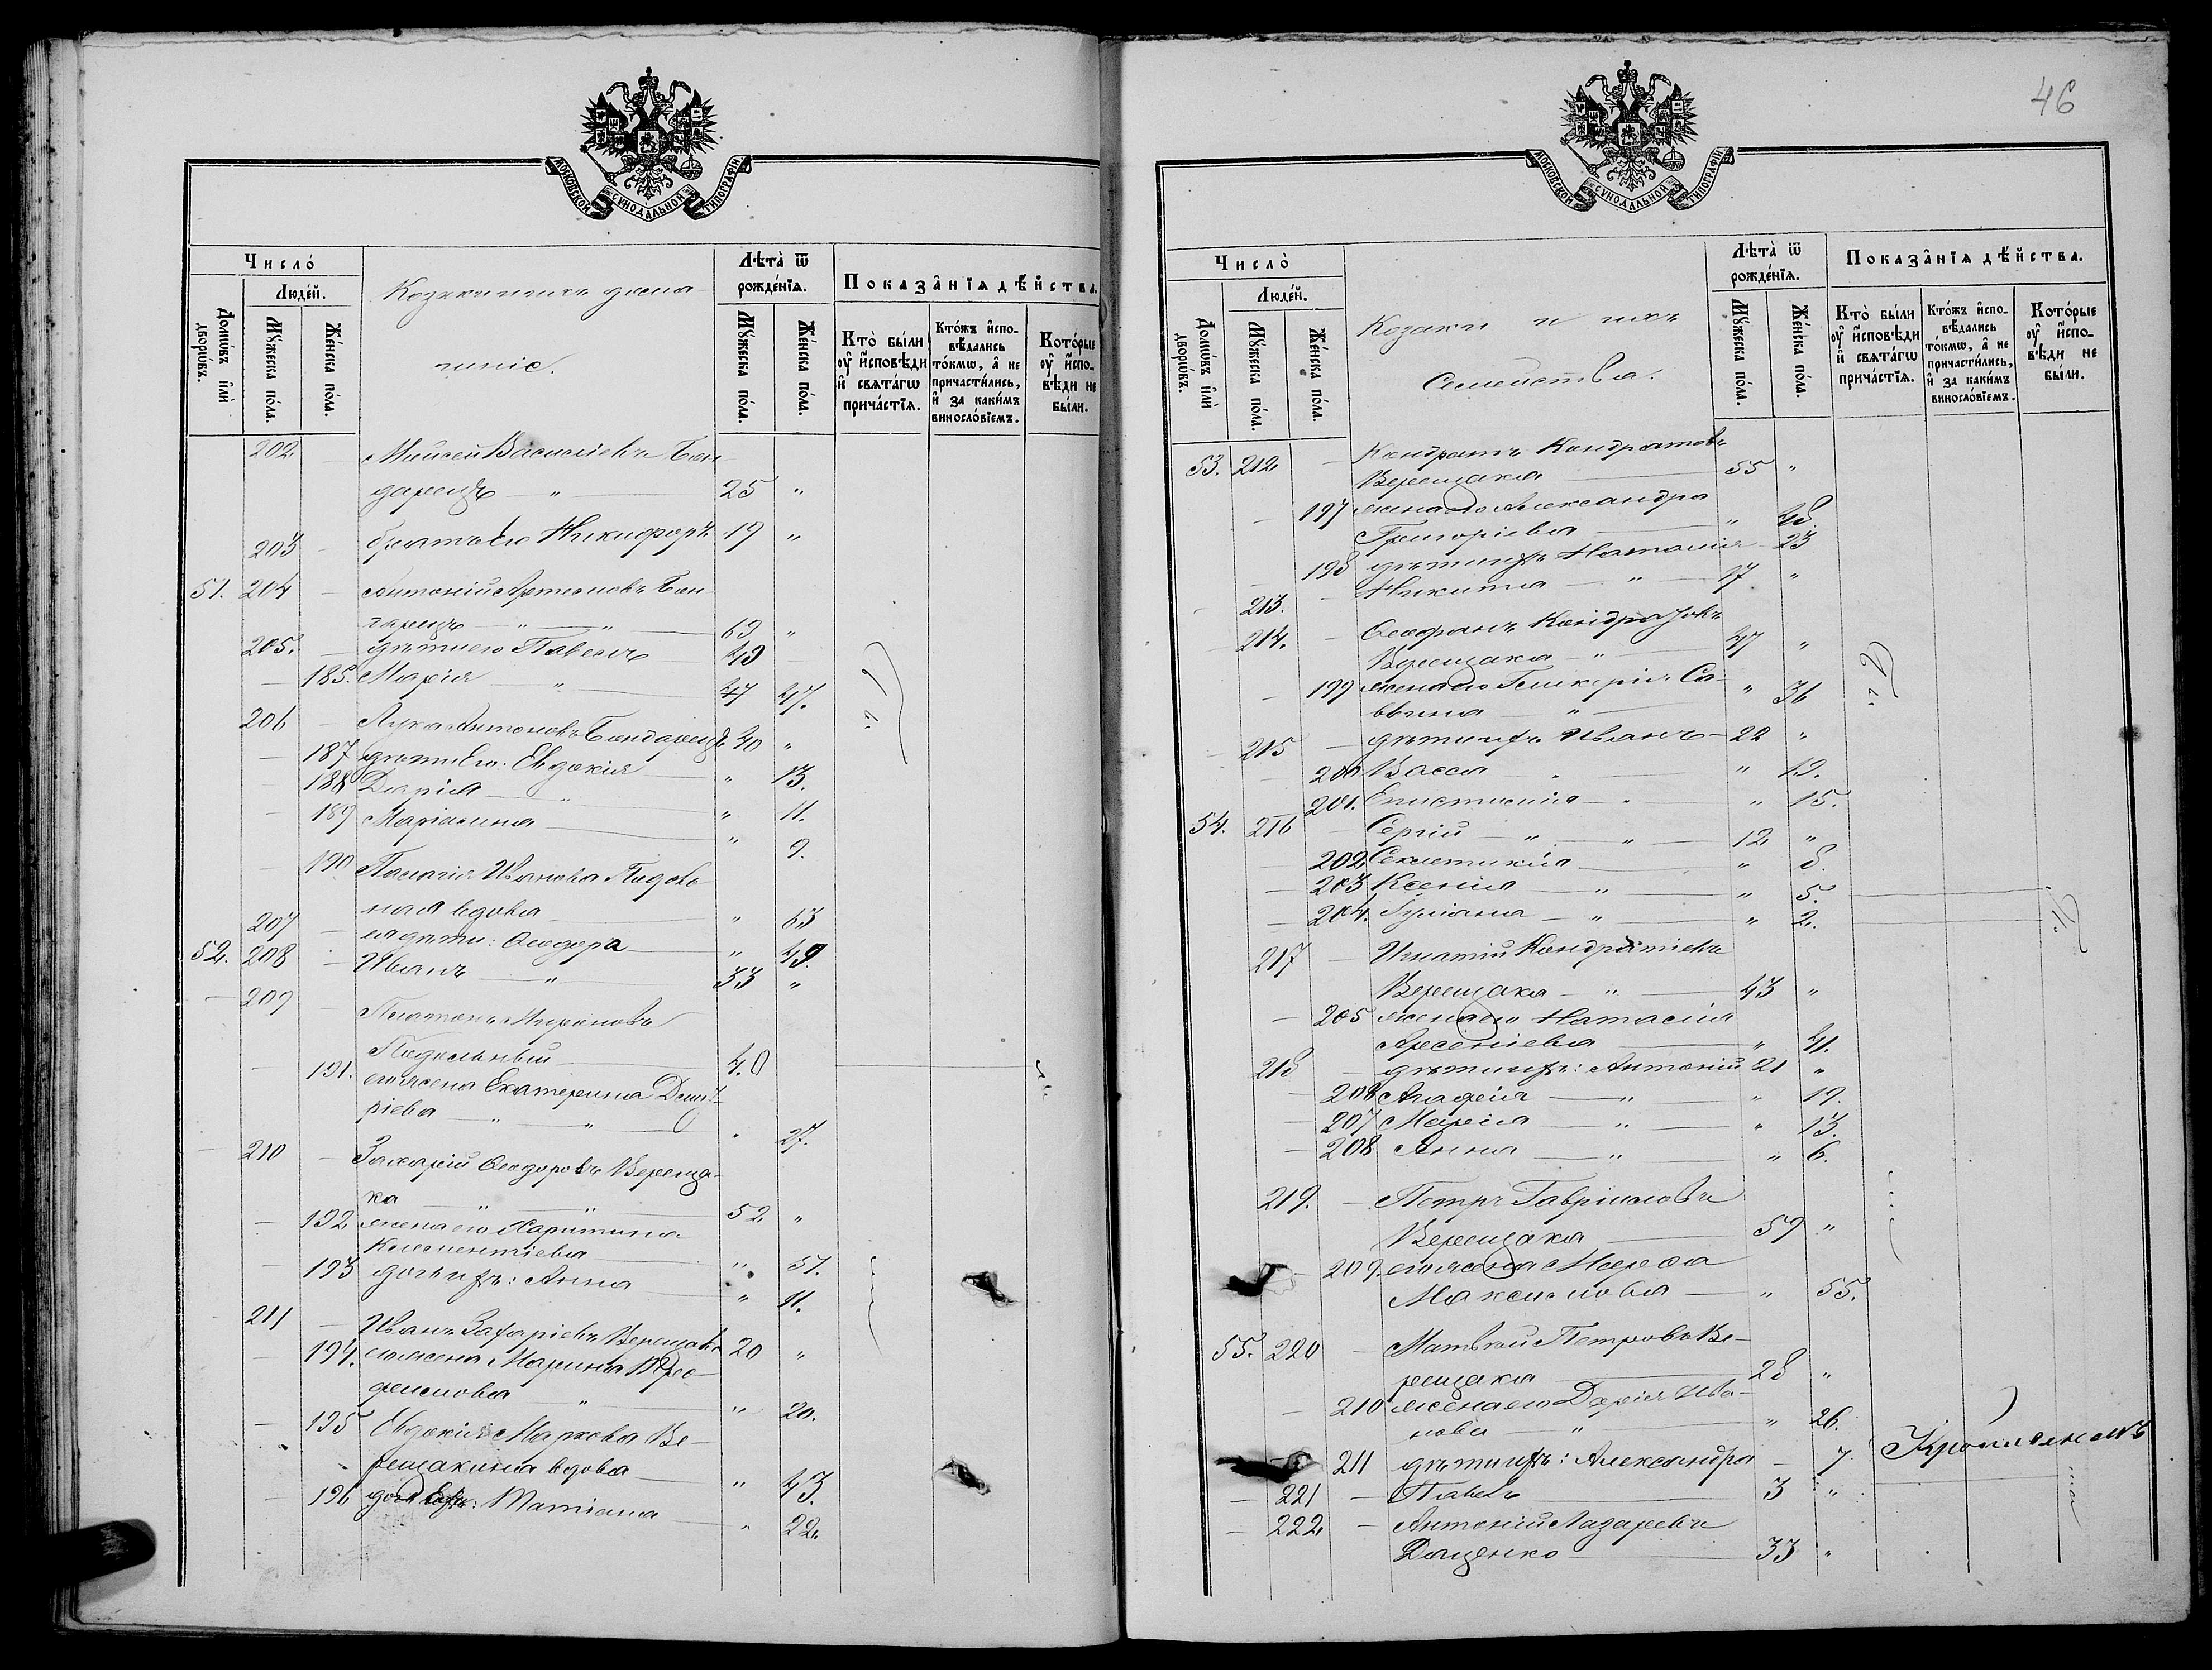 МОСКОВСКОЙ СѴНОДАЛЬНОЙ ТИПОГРАФІИ
Число̀
Домѡ́въ и҆лѝ дворѡ́въ.
Люде́й.
Мꙋ́жеска по́ла.
Же́нска по́ла.
Козаки и ихъ дома
шніе.
Лѣ́та ѿ рожде́нїѧ.
Мꙋ́жеска по́ла.
Же́нска по́ла.
Показа̂нїѧ дѣ́йства.
Кто̀ бы́ли оу҆ и҆́сповѣди и҆ свѧта́гѡ прича́стїѧ.
Кто́жъ и҆спо-
вѣ́дались то́кмѡ, а҆ не причасти́лись, и҆ за каки́мъ виносло́вїемъ.
Кото́рые оу҆ и҆́спо-
вѣди не бы́ли.
202 Мойсей Василіевъ Бон
даренко — " — 25 "
203 братъ его Никифоръ 19 "
51. 204 — Антоній Артемовъ Бон
даренко — " — " — 69 "
205. — дѣти его Павелъ 49
— 185. Марія — " — 47 47.
206 — Лука Антоновъ Бондаренко 40 "
— 187 дѣти его: Евдокія — " 13.
— 188 Дарія — " — " 11.
— 189 " 9.
— 190 Пелагія Иванова
вдова — " 63
207 — дѣти: Ѳеодора — " 49.
52. 208 — Иванъ — " — 33 "
— 209 Платонъ Мироновъ
40
— 191. его жена Екатерина Дмит
ріева — " — " — 27.
— 210 — Захарій Ѳеодоровъ Вереща-
ка — " — " — 52 "
— 192 жена его Харитина
Климентіева — " 51.
— 193 дочь ихъ: Анна — " 11.
211 — Иванъ Захаріевъ Верещака 20 "
— 194. его жена Марина Тро-
фимова — " — " 20.
— 195 Евдокія Маркова Ве-
рещакина вдова — " 43.
— 196 дочь ея: Татіана — " 22.
46
МОСКОВСКОЙ СѴНОДАЛЬНОЙ ТИПОГРАФІИ
Число̀
Домѡ́въ и҆лѝ дворѡ́въ.
Люде́й.
Мꙋ́жеска по́ла.
Же́нска по́ла.
Козаки и ихъ
Семейства.
Лѣ́та ѿ рожде́нїѧ.
Мꙋ́жеска по́ла.
Же́нска по́ла.
Показа̂нїѧ дѣ́йства.
Кто̀ бы́ли оу҆ и҆́сповѣди и҆ свѧта́гѡ прича́стїѧ.
Кто́жъ и҆спо-
вѣ́дались то́кмѡ, а҆ не причасти́лись, и҆ за каки́мъ виносло́вїемъ.
Кото́рые оу҆ и҆́спо-
вѣди не бы́ли.
53. 212 — Кондратъ Кондратовъ
Верещака — 55 "
— 197 жена его Александра
Григоріева — " 48.
— 198 дѣти ихъ Наталія — 23
— 213. — Никита — " — 17 "
— 214. — Кондратовъ
Верещака — " — 47 "
— 199 жена его Гликерія Са-
ввина — " — " 36
— 215 — дѣти ихъ Иванъ — 22 "
— 200 Васса — " 19.
201. Епистимія — " 15.
54. 216 — Сергій — " — " — 12 "
— 202 Секлетикія — " 8.
— 203 Ксенія — " — " 5.
— 204. Іуліана — " — " 2.
217 — Игнатій Кондратіевъ
Верещака — " — 43 "
— 205 жена его Наталія
Арсеніева — " 41.
218 — дѣти ихъ: Антоній 21 "
— 206 Агафія — " — " 19.
— 207 Марія — " — " 13.
— 208 Анна — " — " 6.
219. — Петръ Гавріиловъ
Верещака — 59 "
— 209. его жена Марѳа
Максимова — " 55.
55. 220 — Матвей Петровъ Ве-
рещака — 28 "
— 210 жена его Дарія Ива-
нова — " — " 26.
— 211 дѣти ихъ: Александра — 7.
— 221 — Павелъ — 3 "
— 222 — Антоній Лазаревъ
Доценко — 33 "